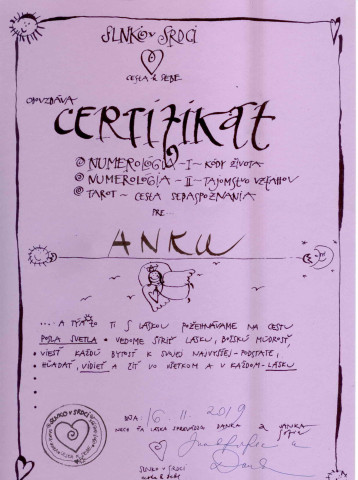 SLNKO V SRDCI
CESTA K SEBE
ODOVZDÁVA
CERTIFIKÁT
NUMEROLÓGIA - I - KÓDY ŽIVOTA
NUMEROLÓGIA - II - TAJOMSTVO VZŤAHOV
TAROT - CESTA SEBASPOZNANIA
PRE...
ANKU
.... A TÝMTO TI S LÁSKOU POŽEHNÁVAME NA CESTU
POSLA SVETLA • VEDOME ŠÍRIŤ LÁSKU, BOŽSKÚ MÚDROSŤ,
• VIESŤ KAŽDÚ BYTOSŤ K SVOJEJ NAJVYŠŠEJ - PODSTATE,
• HĽADAŤ, VIDIEŤ A ŽIŤ VO VŠETKOM A V KAŽDOM - LÁSKU
DŇA: 16. 11. 2019
NECH ŤA LÁSKA SPREVÁDZA DANKA a JANKA
SLNKO V SRDCI
cesta k sebe